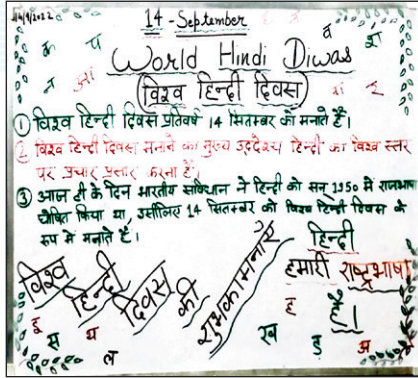 14/9/2022
14 - September
क प व श
World Hindi Diwas
न आ
(विश्व हिन्दी दिवस)
① विश्व हिन्दी दिवस प्रतिवर्ष 14 सितम्बर को मनाते हैं।
② विश्व हिन्दी दिवस मनाने का मुख्य उद्देश्य हिन्दी का विश्व स्तर
पर प्रचार प्रसार करना है।
③ आज ही के दिन भारतीय संविधान ने हिन्दी को सन् 1950 में राजभाषा
घोषित किया था, इसीलिए 14 सितम्बर को विश्व हिन्दी दिवस के
रूप में मनाते है।
विश्व
हिन्दी
दिवस
की
शुभकामनाएं
हिन्दी
हमारी राष्ट्रभाषा
है।
ह
इ स थ ल
ख ड़ अ